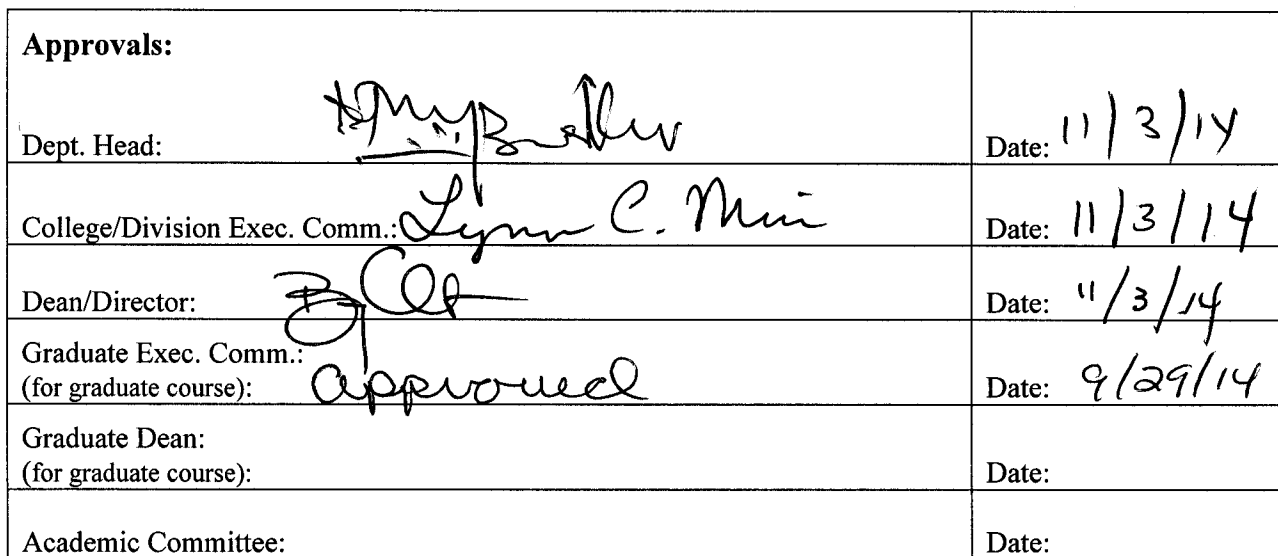 Approvals:
Dept. Head: Date: 11/3/14
College/Division Exec. Comm.: Lynn C. Date: 11/3/14
Dean/Director: Date: 11/3/14
Graduate Exec. Comm.:
(for graduate course): approved Date: 9/29/14
Graduate Dean:
(for graduate course): Date:
Academic Committee: Date: